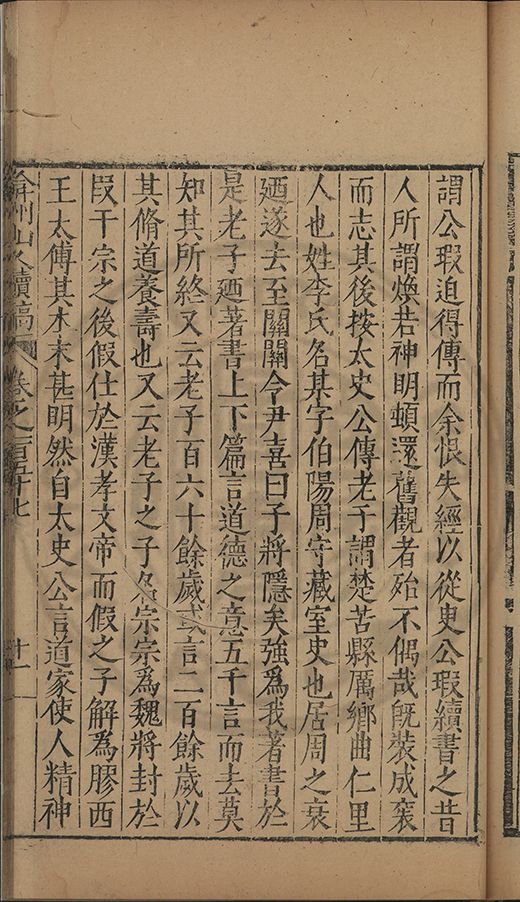 謂公瑕迫得傳而余恨失經以從臾公瑕續書之昔
人所謂煥若神明頓還舊觀者殆不偶哉既裝成裒
而志其後按太史公傳老子謂楚苦縣厲鄉曲仁里
人也姓李氏名某字伯陽周守藏室史也居周之衰
廼遂去至關關令尹喜曰子將隱矣強爲我著書於
是老子廼著書上下篇言道德之意五千言而去莫
知其所終又云老子百六十餘歲或言二百餘歲以
其脩道養壽也又云老子之子名宗宗爲魏將封於
段干宗之後假仕於漢孝文帝而假之子解爲膠西
王太傅其本末甚明然自太史公言道家使人精神
弇州山人續稿 卷之一百五十七 十一